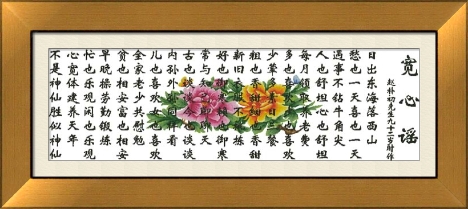 宽心谣
赵朴初先生九十二岁时作
日出东海落西山
愁也一天喜也一天
遇事不钻牛角尖
人也舒坦心也舒坦
每月领取养老费
多也喜欢少也喜欢
少荤多素日三餐
粗也香甜细也香甜
新旧衣 不挑拣
好也御寒 也御寒
常与知己聊聊天
古也谈谈 也谈谈
内孙外孙同样看
儿也喜欢女也喜欢
全家老少共慰勉
贫也相安富也相安
早晚操劳勤锻炼
忙也乐观闲也乐观
心宽体健养天年
不是神仙胜似神仙